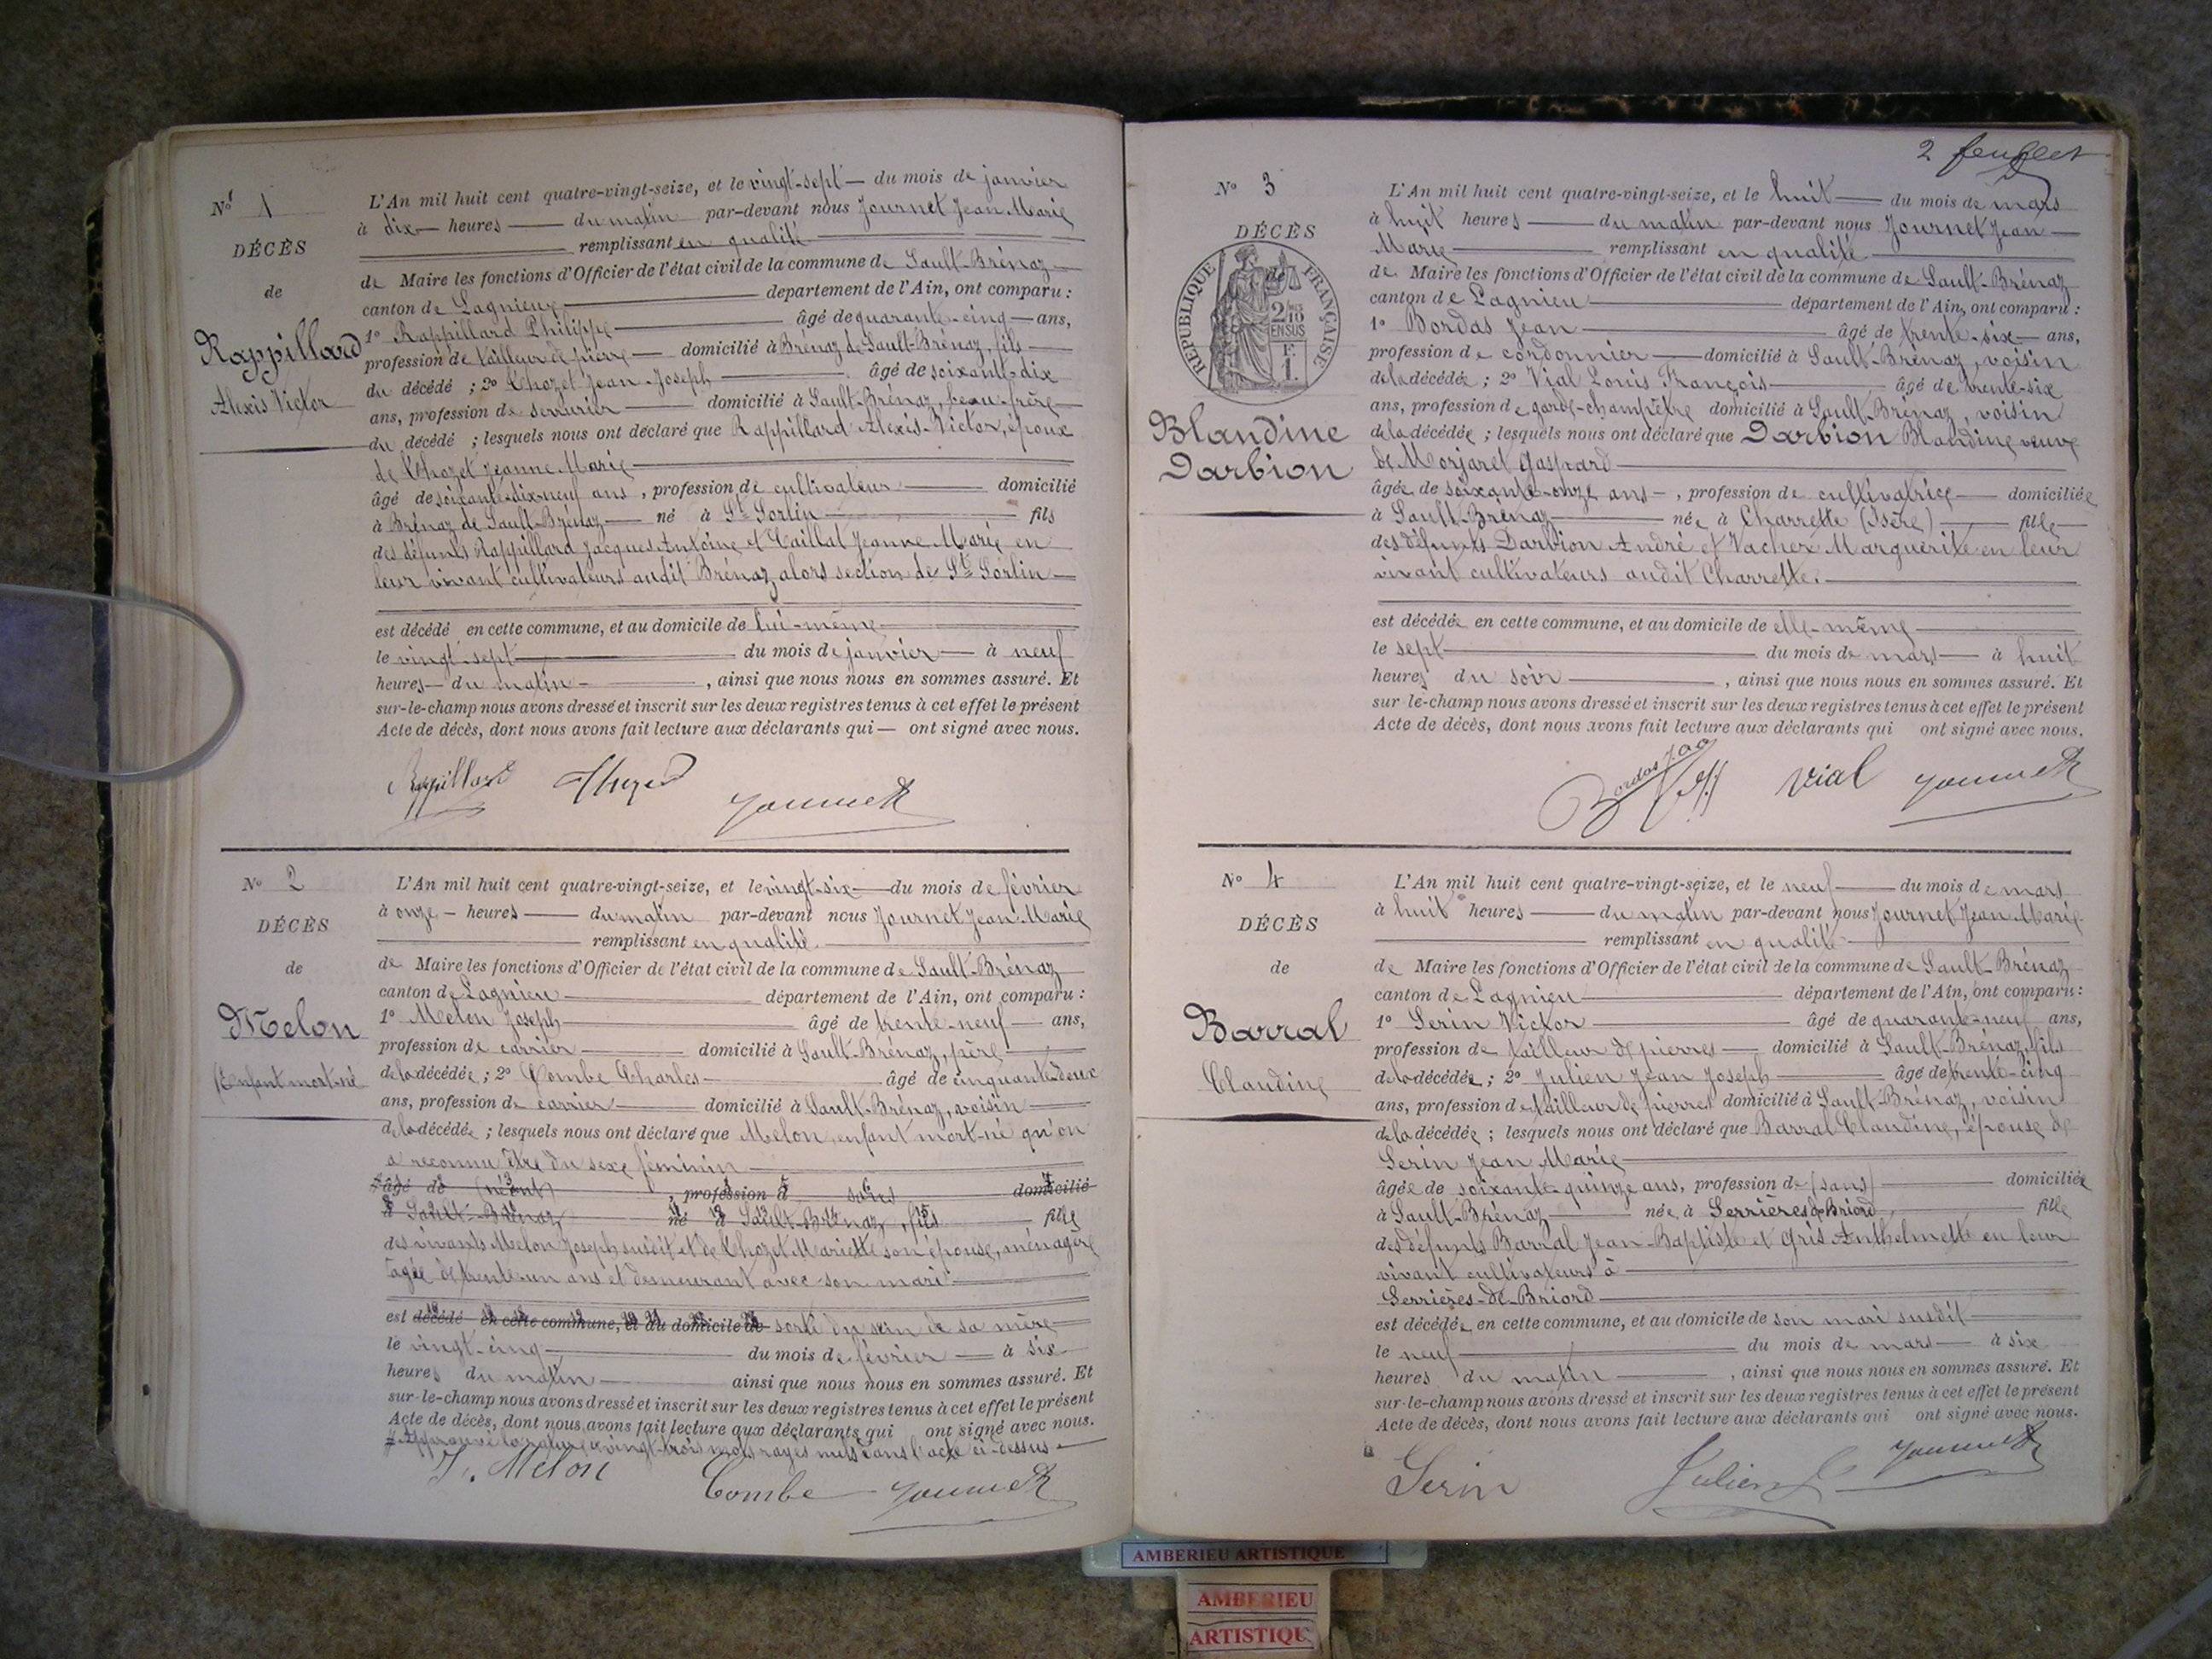 Nº 1
DÉCÈS
de
Rappillard
Alexis Victor
L'An mil huit cent quatre-vingt-seize, et le vingt-sept — du mois de janvier
à dix — heures — du matin par-devant nous Journet Jean Marie
remplissant en qualité
de Maire les fonctions d'Officier de l'état civil de la commune de Sault-Brénaz
canton de Lagnieu — département de l'Ain, ont comparu :
1º Rappillard Philippe — âgé de quarante-cinq — ans,
profession de tailleur de pierre — domicilié à Brénaz de Sault-Brénaz, fils
du décédé ; 2º Chozet Jean-Joseph — âgé de soixante-dix
ans, profession de serrurier — domicilié à Sault-Brénaz, beau-frère
du décédé ; lesquels nous ont déclaré que Rappillard Alexis-Victor, époux
de Chozet Jeanne Marie
âgé de soixante-dix-neuf ans, profession de cultivateur — domicilié
à Brénaz de Sault-Brénaz — né à St Sorlin — fils
des défunts Rappillard Jacques Antoine et Caillat Jeanne Marie en
leur vivant cultivateurs audit Brénaz alors section de St Sorlin
est décédé en cette commune, et au domicile de lui-même
le vingt-sept — du mois de janvier — à neuf
heures — du matin — , ainsi que nous nous en sommes assuré. Et
sur-le-champ nous avons dressé et inscrit sur les deux registres tenus à cet effet le présent
Acte de décès, dont nous avons fait lecture aux déclarants qui — ont signé avec nous.
Rappillard Chozet Journet
Nº 2
DÉCÈS
de
Melon
(Enfant mort-né
L'An mil huit cent quatre-vingt-seize, et le vingt-six — du mois de février
à onze — heures — du matin par-devant nous Journet Jean Marie
remplissant en qualité
de Maire les fonctions d'Officier de l'état civil de la commune de Sault-Brénaz
canton de Lagnieu — département de l'Ain, ont comparu :
1º Melon Joseph — âgé de trente-neuf — ans,
profession de carrier — domicilié à Sault-Brénaz, père
de la décédée ; 2º Combe Charles — âgé de cinquante-deux
ans, profession de carrier — domicilié à Sault-Brénaz, voisin
de la décédée ; lesquels nous ont déclaré que Melon, enfant mort-né qu'on
a reconnu être du sexe féminin
âgé de (néant) , profession d domicilié
à Sault-Brénaz né à Sault-Brénaz, fils fille
des vivants Melon Joseph susdit et de Chozet Mariette son épouse, ménagère
âgée de trente-un ans et demeurant avec son mari
est décédé en cette commune, et au domicile de sorti du sein de sa mère
le vingt-cinq — du mois de février — à six
heures du matin — ainsi que nous nous en sommes assuré. Et
sur-le-champ nous avons dressé et inscrit sur les deux registres tenus à cet effet le présent
Acte de décès, dont nous avons fait lecture aux déclarants qui ont signé avec nous.
# Approuvé la rature de vingt-trois mots rayés nuls dans l'acte ci-dessus
J. Melon Combe Journet
2 feuillet
Nº 3
DÉCÈS
de
REPUBLIQUE FRANÇAISE
2/10
EN SUS
F.
1.
Blandine
Darbion
L'An mil huit cent quatre-vingt-seize, et le huit — du mois de mars
à huit heures — du matin par-devant nous Journet Jean
Marie — remplissant en qualité
de Maire les fonctions d'Officier de l'état civil de la commune de Sault-Brénaz
canton de Lagnieu — département de l'Ain, ont comparu :
1º Bordas Jean — âgé de trente-six — ans,
profession de cordonnier — domicilié à Sault-Brénaz, voisin
de la décédée ; 2º Vial Louis François — âgé de trente-six
ans, profession de garde-champêtre domicilié à Sault-Brénaz, voisin
de la décédée ; lesquels nous ont déclaré que Darbion Blandine veuve
de Morjaret Gaspard
âgée de soixante-onze ans — , profession de cultivatrice — domiciliée
à Sault-Brénaz — née à Charrette (Isère) — fille
des défunts Darbion André et Vacher Marguerite en leur
vivant cultivateurs audit Charrette.
est décédée en cette commune, et au domicile de elle-même
le sept — du mois de mars — à huit
heures du soir — , ainsi que nous nous en sommes assuré. Et
sur-le-champ nous avons dressé et inscrit sur les deux registres tenus à cet effet le présent
Acte de décès, dont nous avons fait lecture aux déclarants qui ont signé avec nous.
Bordas Vial Journet
Nº 4
DÉCÈS
de
Barral
Claudine
L'An mil huit cent quatre-vingt-seize, et le neuf — du mois de mars
à huit heures — du matin par-devant nous Journet Jean Marie
remplissant en qualité
de Maire les fonctions d'Officier de l'état civil de la commune de Sault-Brénaz
canton de Lagnieu — département de l'Ain, ont comparu :
1º Serin Victor — âgé de quarante-neuf ans,
profession de tailleur de pierres — domicilié à Sault-Brénaz, fils
de la décédée ; 2º Julien Jean Joseph — âgé de trente-cinq
ans, profession de tailleur de pierres domicilié à Sault-Brénaz, voisin
de la décédée ; lesquels nous ont déclaré que Barral Claudine, épouse de
Serin Jean Marie
âgée de soixante-quinze ans, profession de (sans) — domiciliée
à Sault-Brénaz — née à Serrières de Briord — fille
des défunts Barral Jean-Baptiste et Gris Anthelmette en leur
vivant cultivateurs à
Serrières-de-Briord
est décédée en cette commune, et au domicile de son mari susdit
le neuf — du mois de mars — à six
heures du matin — , ainsi que nous nous en sommes assuré. Et
sur-le-champ nous avons dressé et inscrit sur les deux registres tenus à cet effet le présent
Acte de décès, dont nous avons fait lecture aux déclarants qui ont signé avec nous.
Serin Julien J Journet
AMBERIEU ARTISTIQUE
AMBERIEU
ARTISTIQU